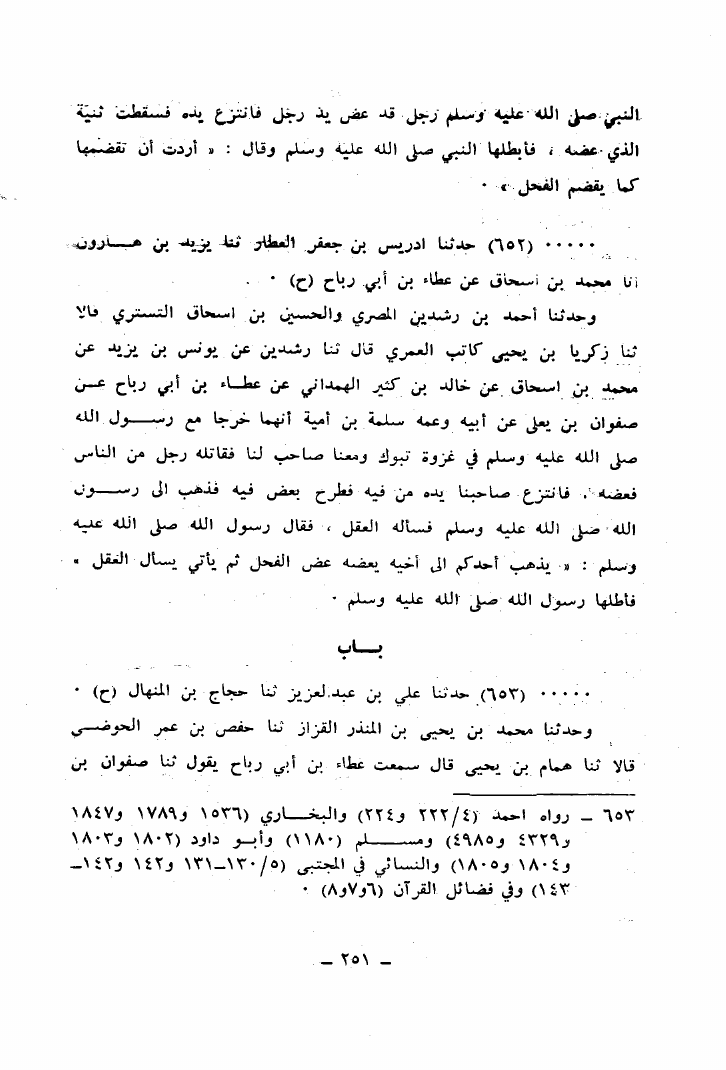 النبي صلى الله عليه وسلم رجل قد عض يد رجل فانتزع يده فسقطت ثنية
الذي عضه ، فأبطلها النبي صلى الله عليه وسلم وقال : « أردت أن تقضمها
كما يقضم الفحل » ٠
٠٠٠٠٠ (٦٥٢) حدثنا ادريس بن جعفر العطار ثنا يزيد بن هــارون
أنا محمد بن اسحاق عن عطاء بن أبي رباح (ح) ٠
وحدثنا أحمد بن رشدين المصري والحسين بن اسحاق التستري قالا
ثنا زكريا بن يحيى كاتب العمري قال ثنا رشدين عن يونس بن يزيد عن
محمد بن اسحاق عن خالد بن كثير الهمداني عن عطـاء بن أبي رباح عــن
صفوان بن يعلى عن أبيه وعمه سلمة بن أمية أنهما خرجا مع رســول الله
صلى الله عليه وسلم في غزوة تبوك ومعنا صاحب لنا فقاتله رجل من الناس
فعضه ، فانتزع صاحبنا يده من فيه فطرح بعض فيه فذهب الى رســول
الله صلى الله عليه وسلم فسأله العقل ، فقال رسول الله صلى الله عليه
وسلم : « يذهب أحدكم الى أخيه يعضه عض الفحل ثم يأتي يسأل العقل »
فأطلها رسول الله صلى الله عليه وسلم ٠
بــاب
٠٠٠٠٠ (٦٥٣) حدثنا علي بن عبدالعزيز ثنا حجاج بن المنهال (ح) ٠
وحدثنا محمد بن يحيى بن المنذر القزاز ثنا حفص بن عمر الحوضــي
قالا ثنا همام بن يحيى قال سمعت عطاء بن أبي رباح يقول ثنا صفوان بن
٦٥٣ ــ رواه احمد (٢٢٢/٤ و٢٢٤) والبخــاري (١٥٣٦ و١٧٨٩ و١٨٤٧
و٤٣٢٩ و٤٩٨٥) ومســـلم (١١٨٠) وأبــو داود (١٨٠٢ و١٨٠٣
و١٨٠٤ و١٨٠٥) والنسائي في المجتبى (١٣٠/٥ــ١٣١ و١٤٢ و١٤٢ــ
١٤٣) وفي فضائل القرآن (٦و٧و٨) ٠
ــ ٢٥١ ــ